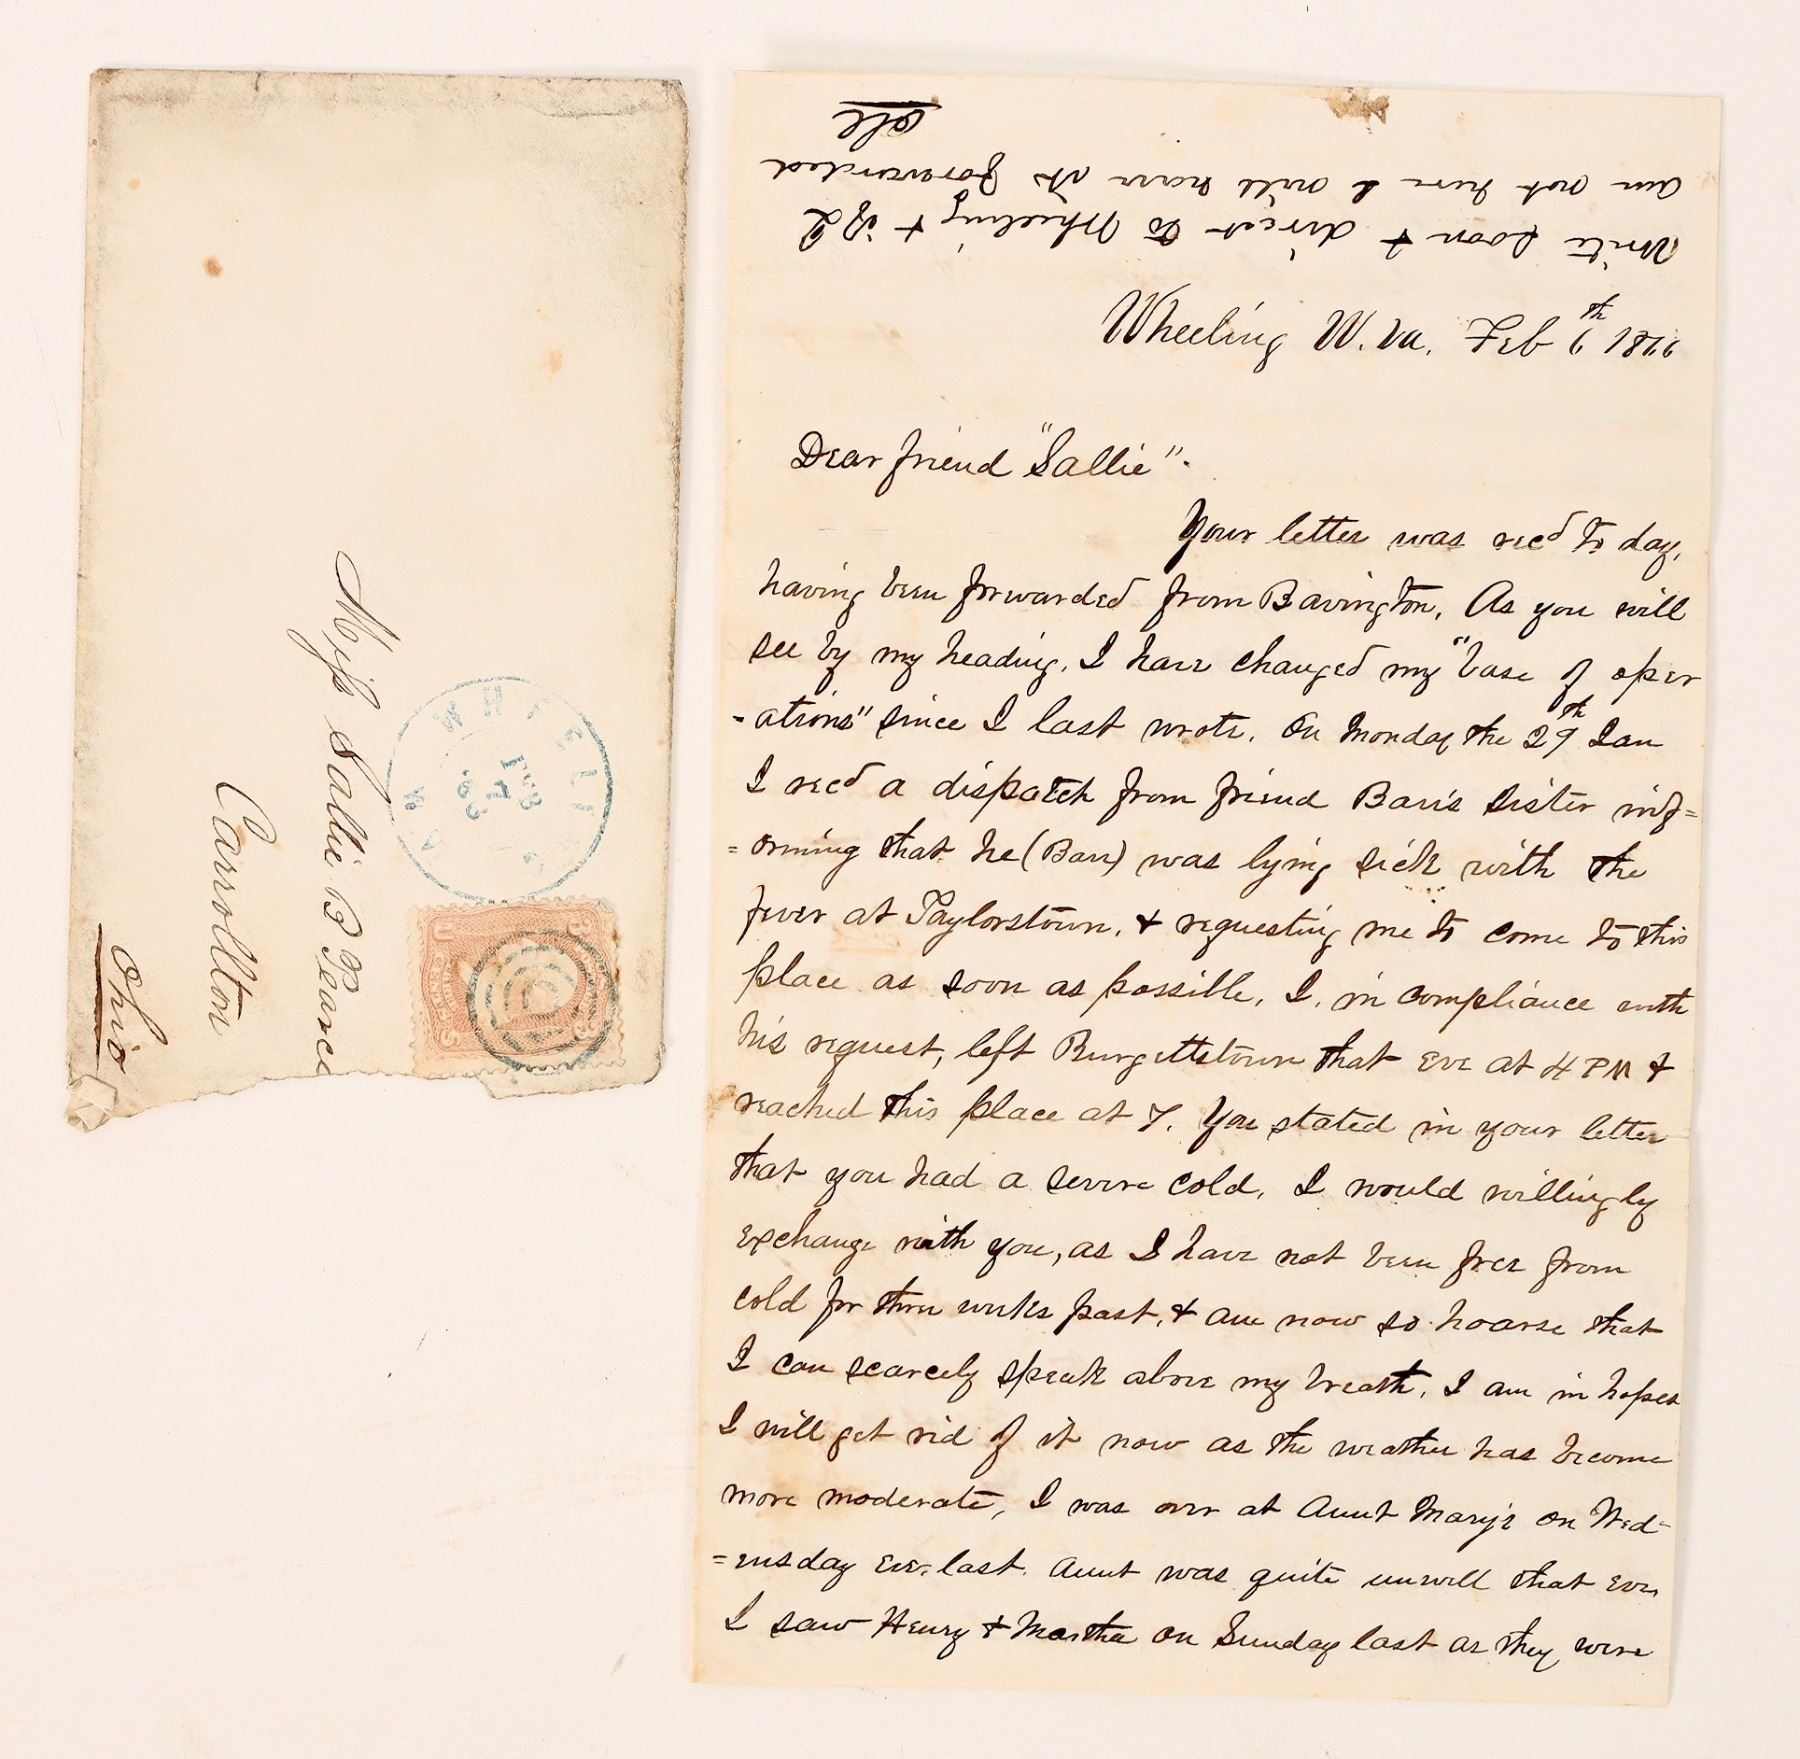 Miss Sallie B Pearce
Carrollton
Ohio
WHEELING W VA
FEB
7
U 3
3
Write soon & direct to Wheeling & if I
am not here I will have it forwarded
Wheeling W. Va. Feb 6th 1866
Dear friend "Sallie".
Your letter was recd To day,
having been forwarded from Bavington. As you will
see by my heading, I have changed my "base of oper
-ations" since I last wrote. On Monday the 29th Jan
I recd a dispatch from friend Barr's sister inf=
=orming that he (Barr) was lying sick with the
fever at Taylorstown, & requesting me to come to this
place as soon as possible, I, in compliance with
his request, left Burgettstown that eve at 4 PM &
reached this place at 7. You stated in your letter
that you had a severe cold, I would willingly
exchange with you, as I have not been free from
cold for three weeks past, & am now so hoarse that
I can scarcely speak above my breath, I am in hopes
I will get rid of it now as the weather has become
more moderate, I was over at Aunt Mary's on Wed-
=ensday eve. last. Aunt was quite unwell that eve,
I saw Henry & Martha on Sunday last as they were